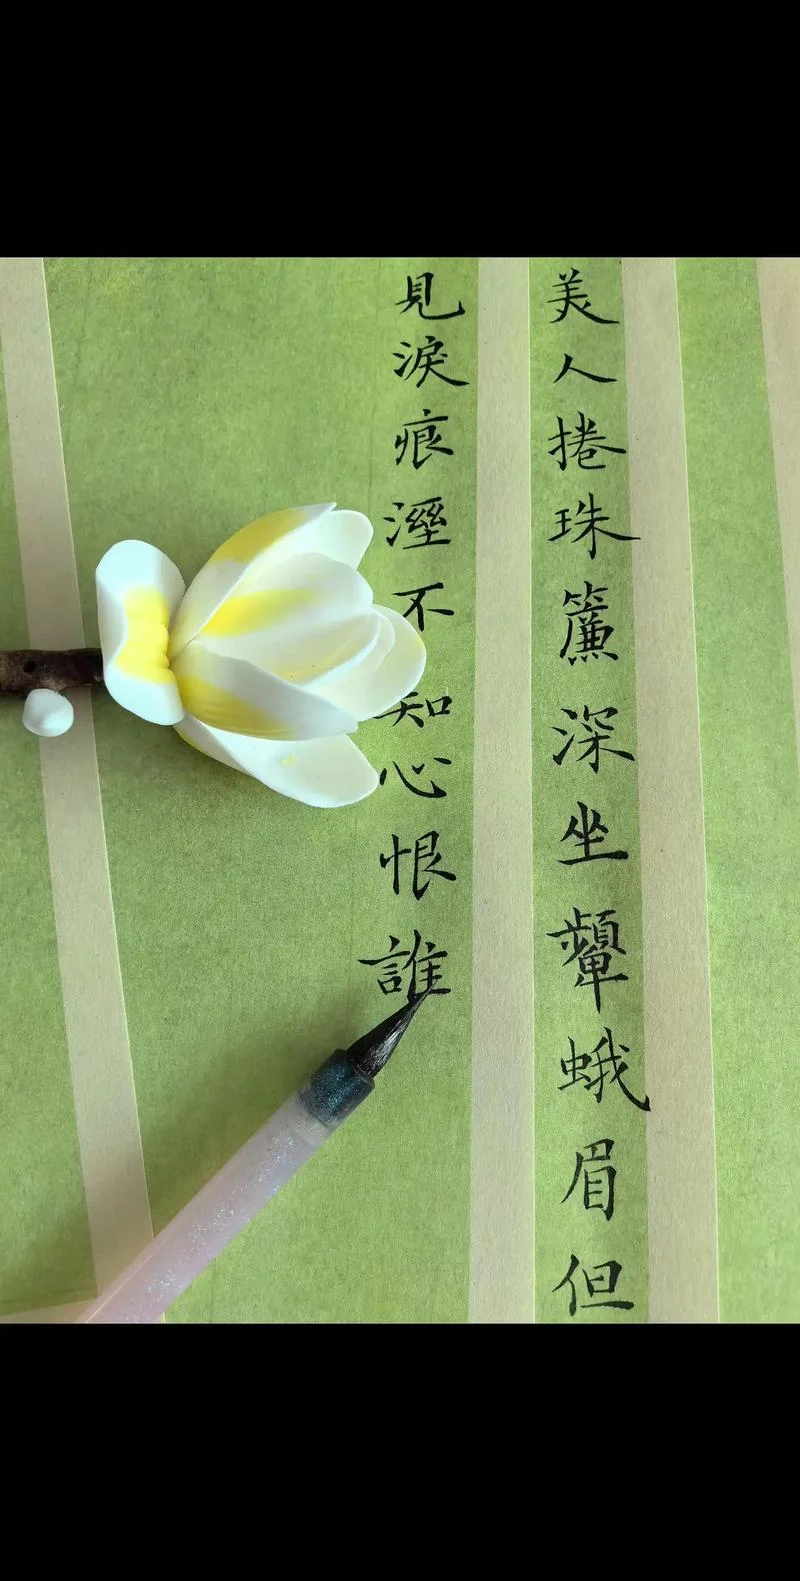 美人捲珠簾深坐顰蛾眉但
見淚痕溼不知心恨誰